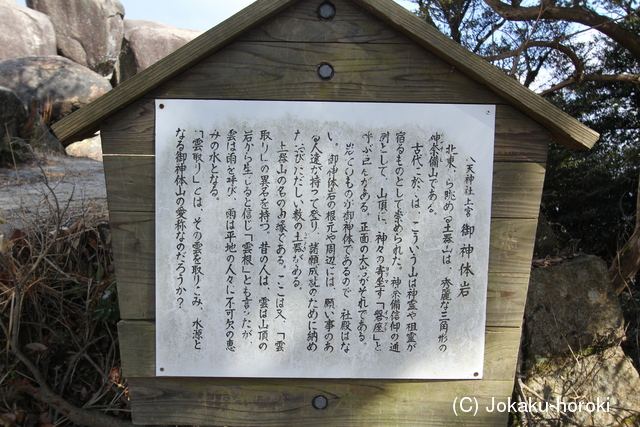 八天神社上宮 御神体岩
北東から眺める土器山は、秀麗な三角形の
神奈備山である。
古代においては、こういう山は神霊や祖霊が
宿るものとして崇められた。神奈備信仰の通
例として、山頂に、神々の寄坐す「磐座」と
呼ぶ巨石がある。正面の大岩がそれである。
岩そのものが御神体であるので、社殿はな
い。御神体岩の根元や周辺には、願い事のあ
る人達が持って登り、諸願成就のために納め
たおびただしい数の土器がある。
土器山の名の由縁である。ここは又、「雲
取り」の異名を持つ。昔の人は、雲は山頂の
岩から生じると信じ「雲根」とも言ったが、
雲は雨を呼び、雨は平地の人々に不可欠の恵
みの水となる。
「雲取り」とは、その雲を取りこみ、水源と
なる御神体山の愛称なのだろうか?
(C) Jokaku-horoki